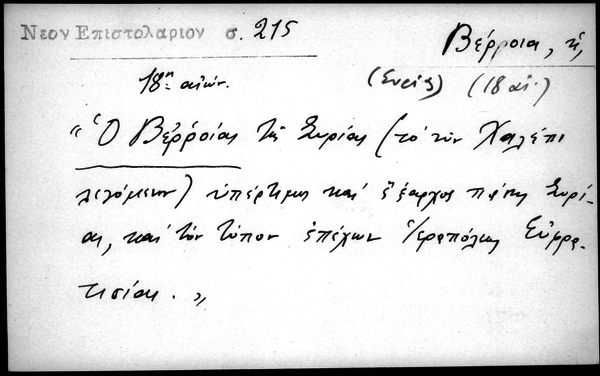 Νεον Επιστολαριον σ. 215
Βέρροια, ἡ,
18η αἰών.
(Συρίας) (18 αἰ.)
“Ὁ Βεῤῥοίας τῆς Συρίας (τὸ νῦν Χαλέπι
λεγόμενον) ὑπέρτιμος καὶ ἔξαρχος πάσης Συρί-
ας, καὶ τὸν τόπον ἐπέχων Ἱεραπόλεως Εὐφρα-
τησίας.”